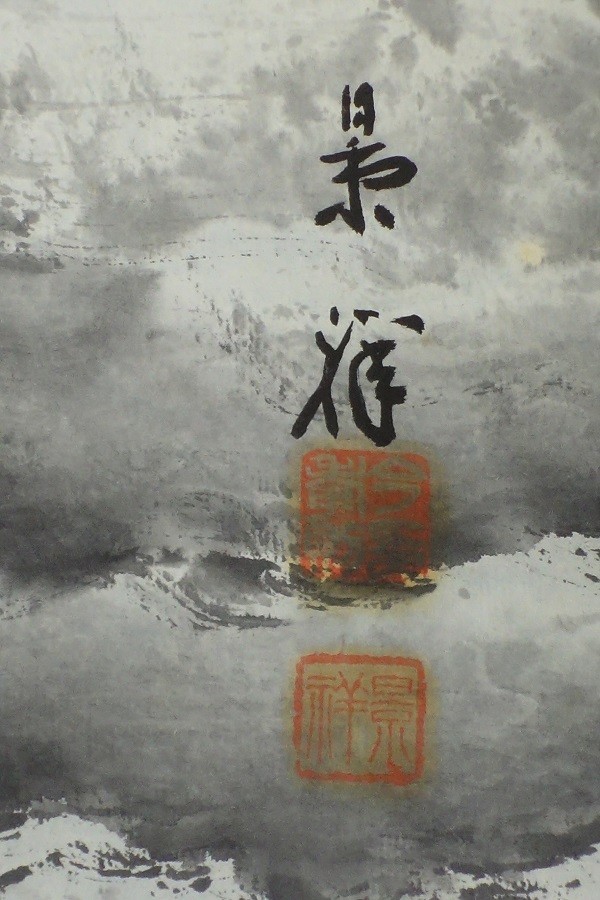 景
祥
今
景祥